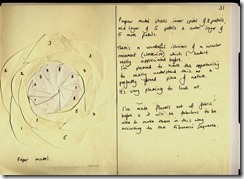 31
Paper model shows inner spiral of 8 petals,
mid layer of 5 petals & outer layer of
5 more petals.
There's a wonderful illusion of a circular
movement (clockwise) which I hadn't
really appreciated before.
I'm pleased to have the opportunity
to really understand this as a
perfectly formed piece of nature.
It's very pleasing to look at.
I've made flowers out of fabric
before & it will be fabulous to be
able to make them in this way
according to the Fibonacci Sequence.
Paper model.